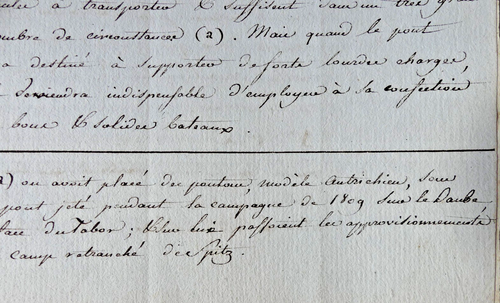 à transporter & suffisent dans un très gran
ombre de circonstances (a). Mais quand le pont
a destiné à supporter de forts lourdes charges,
deviendra indispensable d'employer à sa confection
bons & solides bateaux.
a) on avoit placé des pontons, modèle autrichien, sous
pont jeté pendant la campagne de 1809 sur le Danube,
face du Tabor; & sur lui passoient les approvisionnements
camp retranché de Spitz.